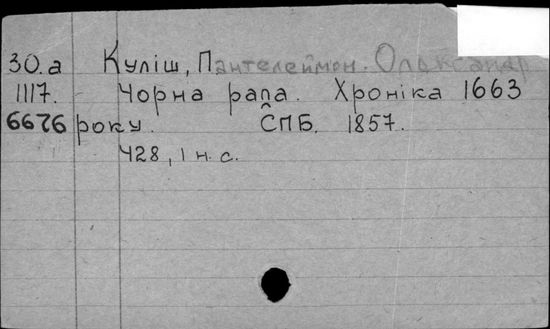 30.а Куліш, Пантелеймон. Олександр
1117. Чорна рапа. Хроніка 1663
6626 року. СПБ. 1857.
428, 1 н. с.